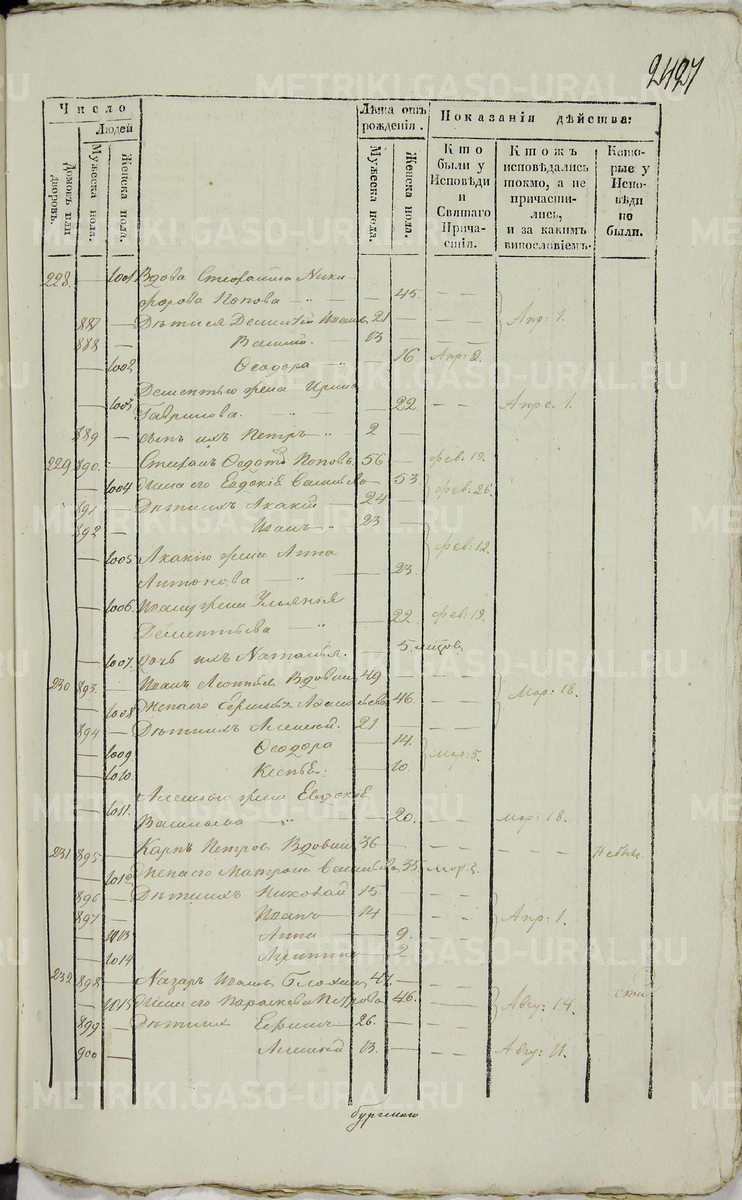 2427
Число
Людей
Домовъ или дворовъ.
Мужеска пола.
Женска пола.
Лѣта отъ рожденія.
Мужеска пола.
Женска пола.
Показанія дѣйства:
Кто были у Исповѣди и Святаго Причастія.
Кто жъ исповѣдались токмо, а не причастились, и за какимъ винословіемъ.
Которые у Исповѣди не были.
228 — 1001 Вдова Стефанида Ники-
форова Попова — 45 — — Апр: 1.
887 — Дѣти ея Дементій 21
888 — 13
1002 Ѳеодора 16 Апр: 2.
Дементью жена Ирина
1003 Гаврилова. — 22 — — Апре. 1.
889 — сынъ ихъ Петръ 2 —
229 890 Стефанъ Ѳедот Поповъ 56 — фев. 19.
1004 Жена его Евдокія 53 фев: 26.
891 — Дѣти ихъ Акакій 24
892 — Иванъ 23 —
1005 Акакію жена Анна фев: 12.
Антонова — 23.
1006 Ивану жена Ульянія
Дементьева — 22 фев: 19
1007. дочь ихъ Наталья. 5.
230 893. Иванъ Леонтьев Вдовин 49 — Мар: 18.
1008 Жена его 46
894 — Дѣти ихъ Алексей. 21
1009 Ѳеодора — 14. Мар: 5.
1010 10.
Алексею жена Евдокія
1011. Васильева — 20. — Мар: 18.
231 895 — Карпъ Петров Вдовин 36 — — —
1012 Жена его Матрона 35 Мар:
896 — Дѣти ихъ Николай 15
897 — Иванъ 14 — Апр: 1.
1013 Анна — 9.
1014 2
232 898 — Назаръ 47
1015 Жена его Параскева Петрова 46. Авгу: 14.
899 — Дѣти ихъ 26.
900 — Алексей 13. Авгу: 11.